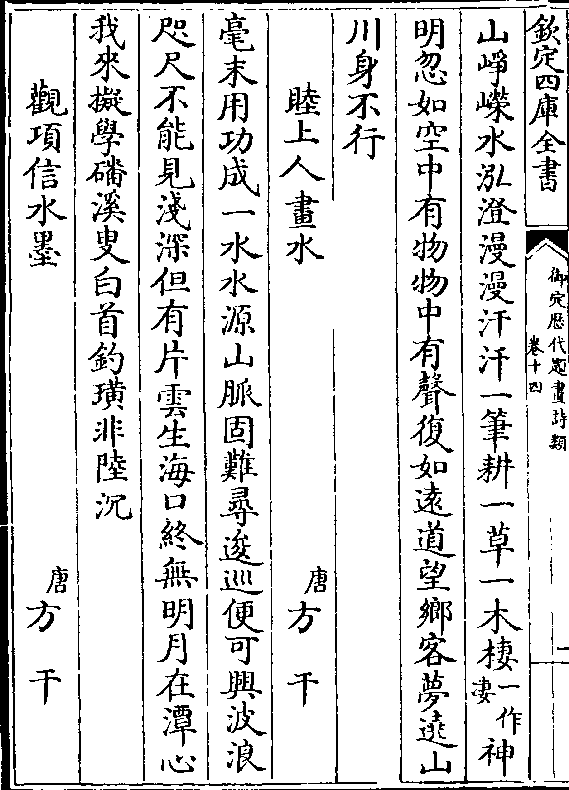 欽定四庫全書
御定歷代題畫詩類
卷十四
一
山崢嶸水泓澄漫漫汗汗一筆耕一草一木棲一作神
妻
明忽如空中有物物中有聲復如遠道望鄉客夢遶山
川身不行
睦上人畫水 唐 方 干
毫末用功成一水水源山脈固難尋逡巡便可興波浪
咫尺不能見淺深但有片雲生海口終無明月在潭心
我來擬學磻溪叟白首釣璜非陸沉
觀項信水墨 唐 方 干